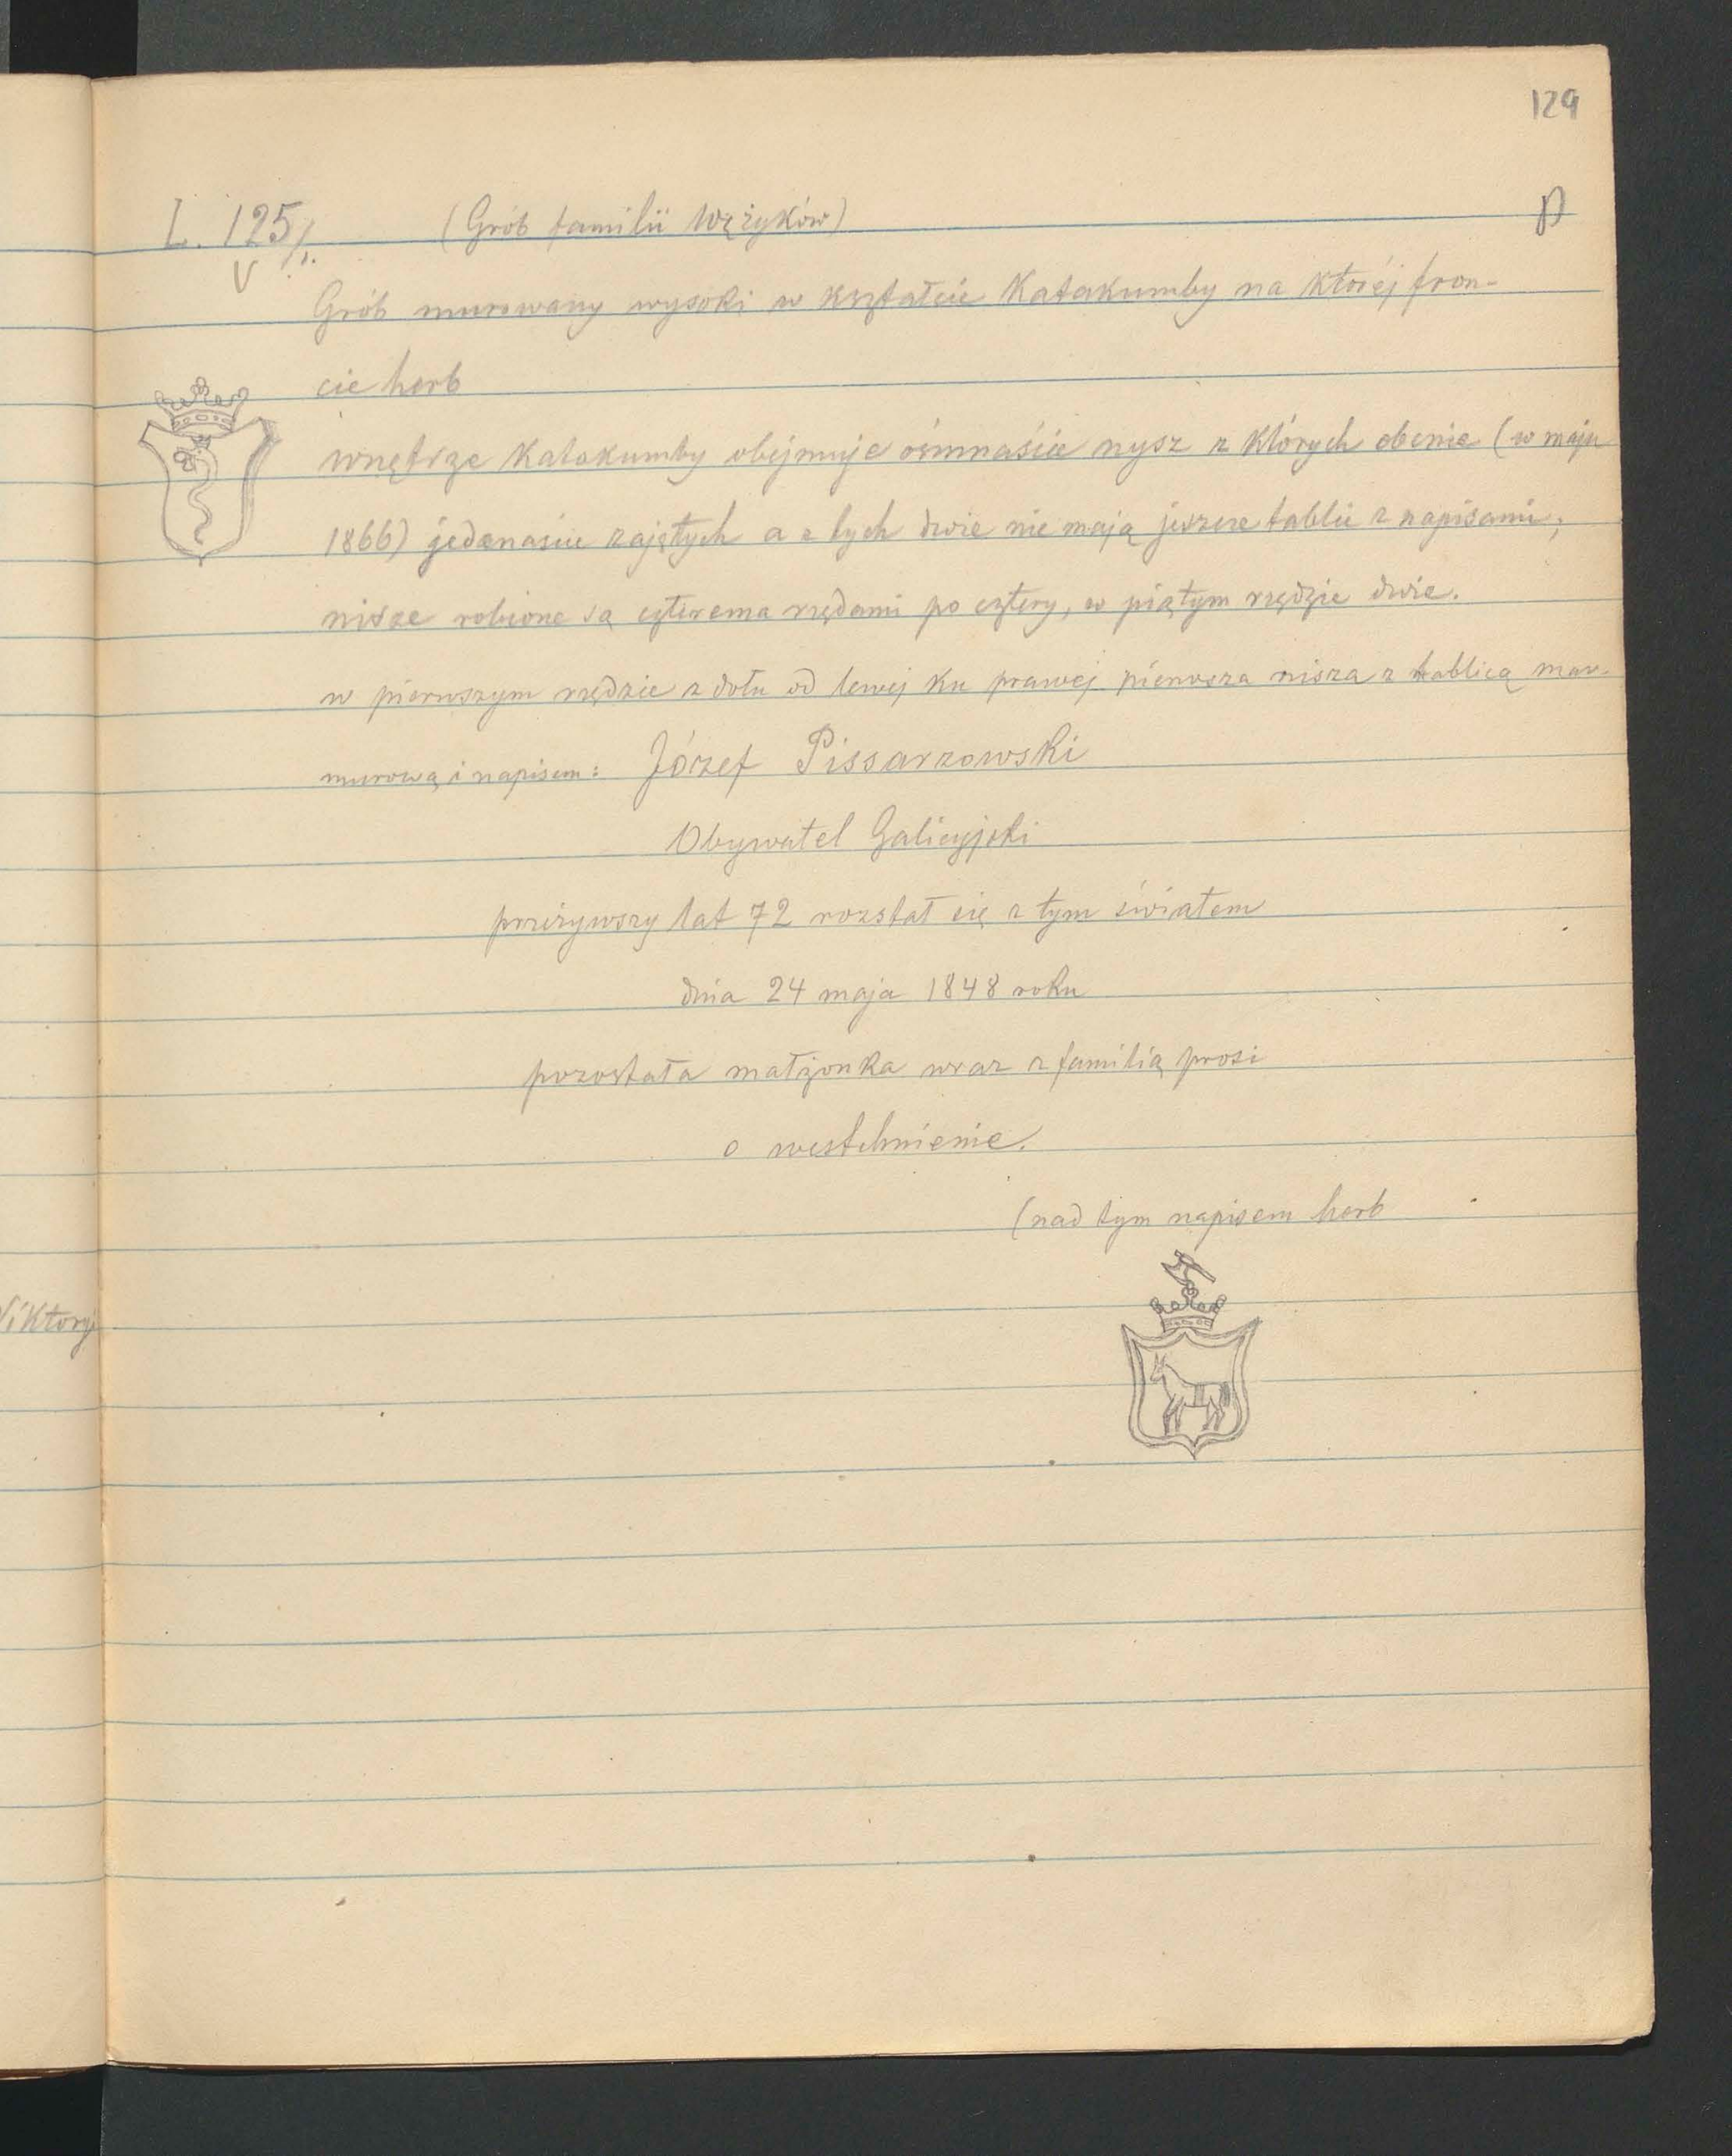 129
L. 125/. (Grób familii Wężyków) p
V
Grób murowany wysoki w kształcie Katakumby na któréj fron-
cie herb
wnętrze Katakumby obéjmuje ósmnaście nysz z których obecnie (w maju
1866) jedenaście zajętych a z tych dwie nie mają jeszcze tablic z napisami;
nisze robione są czterema rzędami po cztery, w piątym rzędzie dwie.
w pierwszym rzędzie z dołu od lewej ku prawej pierwsza nisza z tablicą mar-
murową i napisem: Józef Pissarzowski
Obywatel Galicyjski
przeżywszy lat 72 rozstał się z tym światem
dnia 24 maja 1848 roku
pozostała małżonka wraz z familią prosi
o westchnienie.
(nad tym napisem herb
Wiktoryi